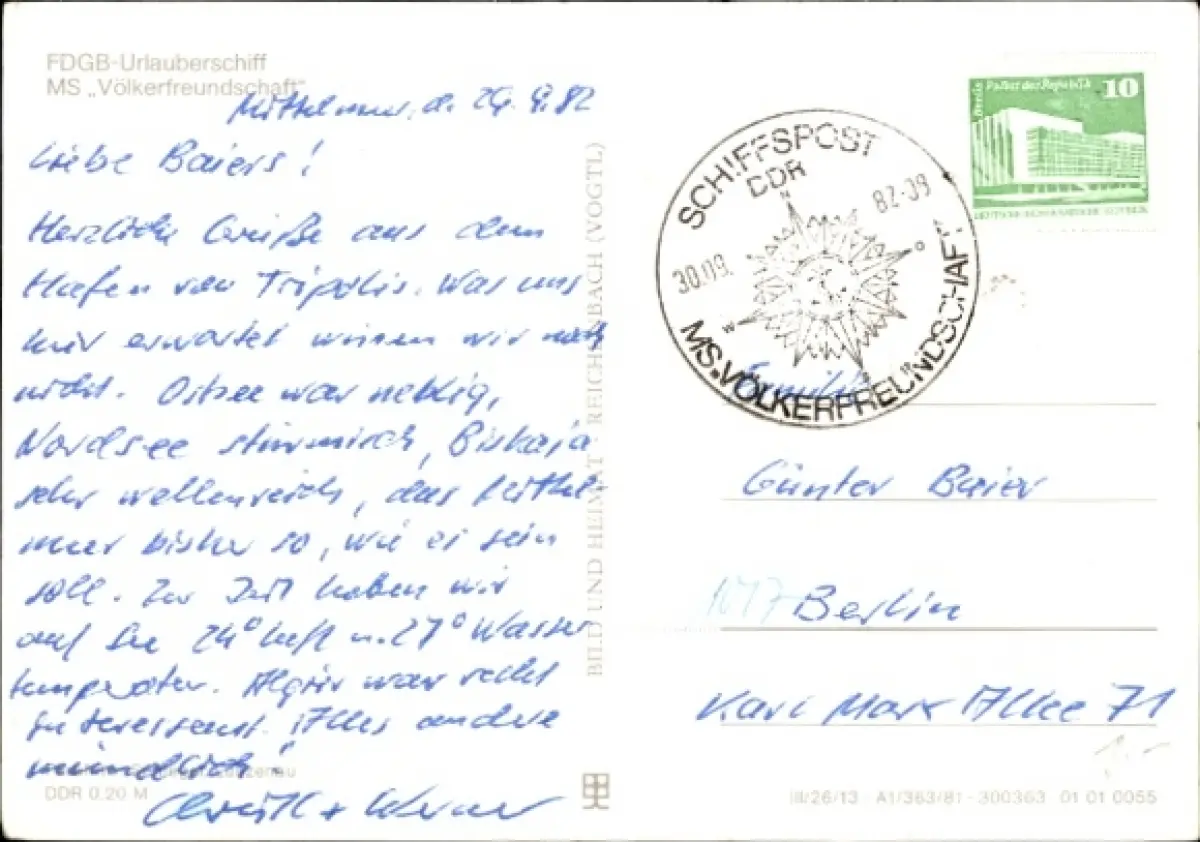 FDGB-Urlauberschiff
MS „Völkerfreundschaft"
Mittelmeer, d. 29. 9. 82
Liebe Baiers!
Herzliche Grüße aus dem
Hafen von Tripolis. Was uns
hier erwartet wissen wir noch
nicht. Ostsee war neblig,
Nordsee stürmisch, Biskaja
sehr wellenreich, das Mittel
meer bisher so, wie es sein
soll. Zur Zeit haben wir
auf See 24° Luft u. 27° Wasser
temperatur. Algier war recht
interessant. Alles andere
mündlich!
+ Werner
DDR 0.20 M
BILD UND HEIMAT · REICHENBACH (VOGTL)
Berlin Palast der Republik 10
SCHIFFSPOST
DDR
30.09. 82-09
N
O
W
MS. VÖLKERFREUNDSCHAFT
Familie
Günter Baier
1017 Berlin
Karl Marx Allee 71
III/26/13 · A1/363/81 - 300363 01 01 0055